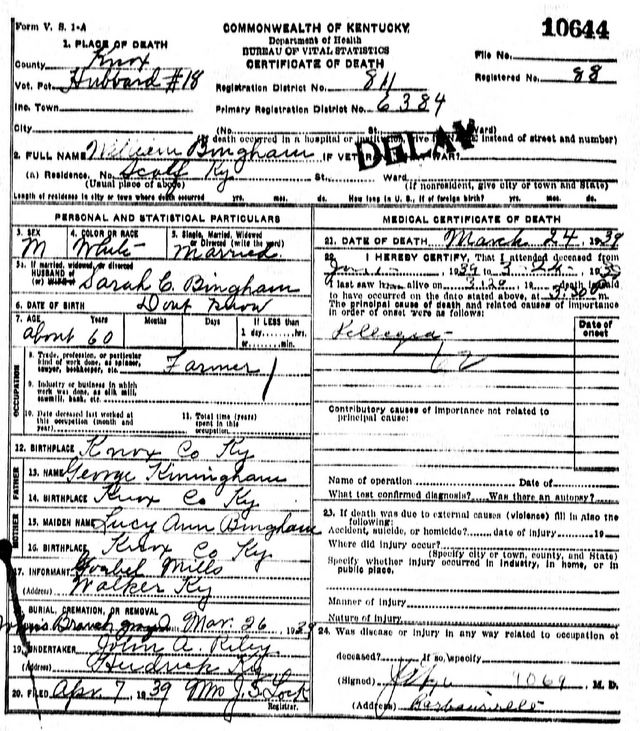 Form V. S. 1-A
COMMONWEALTH OF KENTUCKY
Department of Health
BUREAU OF VITAL STATISTICS
CERTIFICATE OF DEATH
10644
File No.
Registered No. 88
1. PLACE OF DEATH
County Knox
Vot. Pct. Hubbard #18
Inc. Town
City
Registration District No. 811
Primary Registration District No. 6384
(No. St. Ward)
(If death occurred in a hospital or institution, give its NAME instead of street and number)
DELAY
2. FULL NAME William Bingham IF VETERAN, WAR?
(a) Residence, No. Scalf Ky St. Ward
(Usual place of abode) (If nonresident, give city or town and State)
Length of residence in city or town where death occurred yrs. mos. ds. How long in U. S., if of foreign birth? yrs. mos. ds.
PERSONAL AND STATISTICAL PARTICULARS
3. SEX M
4. COLOR OR RACE White
5. Single, Married, Widowed or Divorced (write the word) Married
5a. If married, widowed, or divorced
HUSBAND of
(or) WIFE of Sarah C. Bingham
6. DATE OF BIRTH Dont Know
7. AGE Years Months Days If LESS than
about 60 1 day, hrs.
or min.
OCCUPATION
8. Trade, profession, or particular kind of work done, as spinner, sawyer, bookkeeper, etc. Farmer
9. Industry or business in which work was done, as silk mill, sawmill, bank, etc.
10. Date deceased last worked at this occupation (month and year)
11. Total time (years) spent in this occupation
12. BIRTHPLACE Knox Co Ky
FATHER
13. NAME George
14. BIRTHPLACE Knox Co Ky
MOTHER
15. MAIDEN NAME Lucy Ann Bingham
16. BIRTHPLACE Knox Co Ky
17. INFORMANT Mills
(Address) Walker Ky
18. BURIAL, CREMATION, OR REMOVAL
Branch Mar. 26 1939
19. UNDERTAKER John A. Riley
(Address) Ky
20. FILED Apr. 7 1939 Mrs J. S. Lock
Registrar.
MEDICAL CERTIFICATE OF DEATH
21. DATE OF DEATH March 24 1939
22. I HEREBY CERTIFY, That I attended deceased from
1939 to 3-24- 1939
I last saw him alive on 3.20 19 death is said
to have occurred on the date stated above, at m.
The principal cause of death and related causes of importance
in order of onset were as follows:
Date of onset
Contributory causes of importance not related to
principal cause:
Name of operation Date of
What test confirmed diagnosis? Was there an autopsy?
23. If death was due to external causes (violence) fill in also the
following:
Accident, suicide, or homicide? date of injury 19
Where did injury occur?
(Specify city or town, county, and State)
Specify whether injury occurred in industry, in home, or in
public place.
Manner of injury
Nature of injury
24. Was disease or injury in any way related to occupation of
deceased? If so, specify
(Signed) M. D.
(Address) Barbourville